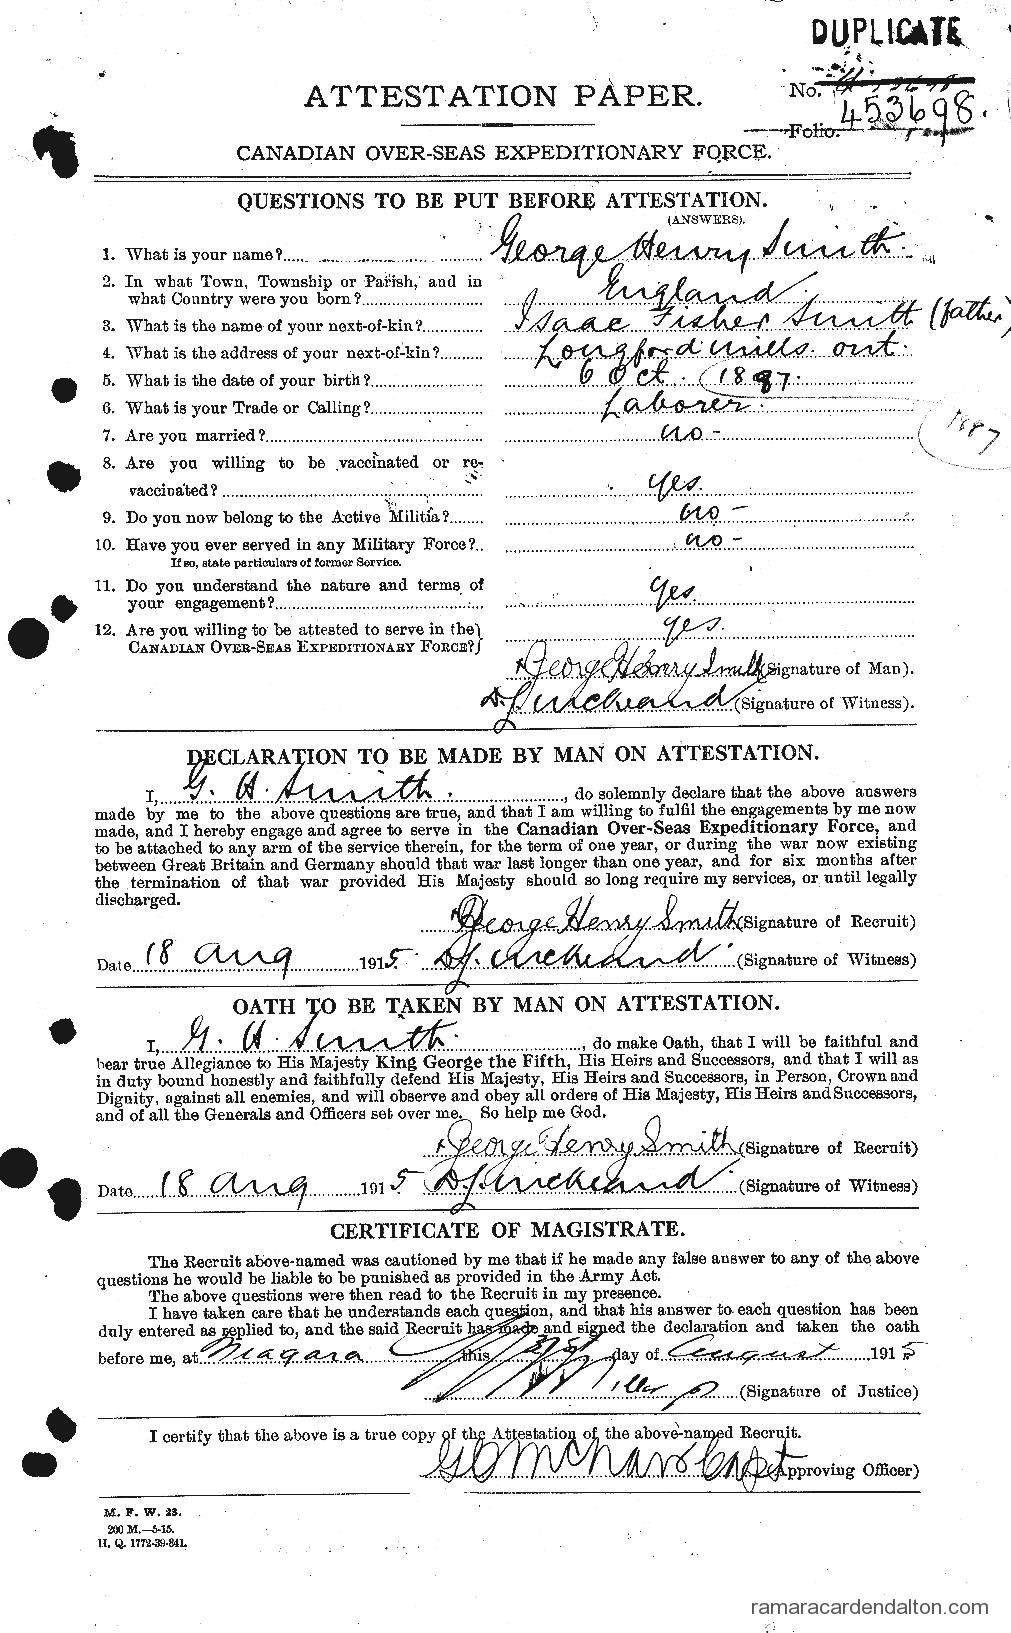 DUPLICATE
ATTESTATION PAPER.
No.
453698.
Folio.
CANADIAN OVER-SEAS EXPEDITIONARY FORCE.
QUESTIONS TO BE PUT BEFORE ATTESTATION.
(ANSWERS).
1. What is your name? George Henry Smith.
2. In what Town, Township or Parish, and in
what Country were you born? England.
3. What is the name of your next-of-kin? Isaac Fisher Smith (father)
4. What is the address of your next-of-kin? Longford Mills. Ont.
5. What is the date of your birth? 6 Oct. 1887.
6. What is your Trade or Calling? Laborer.
1887
7. Are you married? no -
8. Are you willing to be vaccinated or re-
vaccinated? Yes.
9. Do you now belong to the Active Militia? no -
10. Have you ever served in any Military Force? no -
If so, state particulars of former Service.
11. Do you understand the nature and terms of
your engagement? Yes.
12. Are you willing to be attested to serve in the
CANADIAN OVER-SEAS EXPEDITIONARY FORCE? Yes.
George Henry Smith (Signature of Man).
(Signature of Witness).
DECLARATION TO BE MADE BY MAN ON ATTESTATION.
I, G. H. Smith., do solemnly declare that the above answers
made by me to the above questions are true, and that I am willing to fulfil the engagements by me now
made, and I hereby engage and agree to serve in the Canadian Over-Seas Expeditionary Force, and
to be attached to any arm of the service therein, for the term of one year, or during the war now existing
between Great Britain and Germany should that war last longer than one year, and for six months after
the termination of that war provided His Majesty should so long require my services, or until legally
discharged.
George Henry Smith (Signature of Recruit)
Date 18 Aug 1915. (Signature of Witness)
OATH TO BE TAKEN BY MAN ON ATTESTATION.
I, G. H. Smith., do make Oath, that I will be faithful and
bear true Allegiance to His Majesty King George the Fifth, His Heirs and Successors, and that I will as
in duty bound honestly and faithfully defend His Majesty, His Heirs and Successors, in Person, Crown and
Dignity, against all enemies, and will observe and obey all orders of His Majesty, His Heirs and Successors,
and of all the Generals and Officers set over me. So help me God.
George Henry Smith (Signature of Recruit)
Date 18 Aug 1915 (Signature of Witness)
CERTIFICATE OF MAGISTRATE.
The Recruit above-named was cautioned by me that if he made any false answer to any of the above
questions he would be liable to be punished as provided in the Army Act.
The above questions were then read to the Recruit in my presence.
I have taken care that he understands each question, and that his answer to each question has been
duly entered as replied to, and the said Recruit has made and signed the declaration and taken the oath
before me, at Niagara this day of August 1915
(Signature of Justice)
I certify that the above is a true copy of the Attestation of the above-named Recruit.
Capt (Approving Officer)
M. F. W. 23.
200 M.—5-15.
H. Q. 1772-39-841.
ramaracardendalton.com